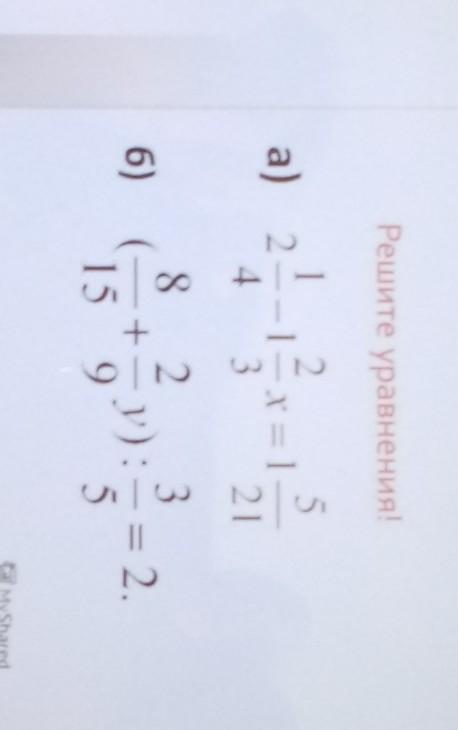 Решите уравнения!
а) 2 1/4 − 1 2/3 x = 1 5/21
б) (8/15 + 2/9 y) : 3/5 = 2.
MyShared